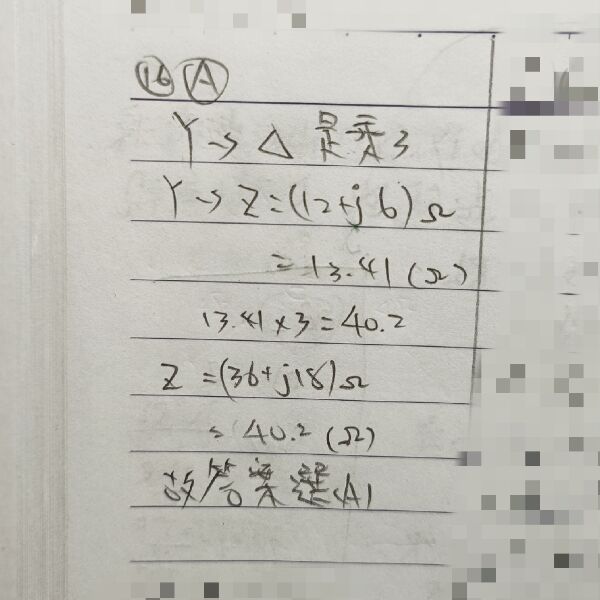 16 A
Y → △ 是乘3
Y → Z = (12+j6)Ω
= 13.41 (Ω)
13.41 × 3 = 40.2
Z = (36+j18)Ω
= 40.2 (Ω)
故答案選(A)